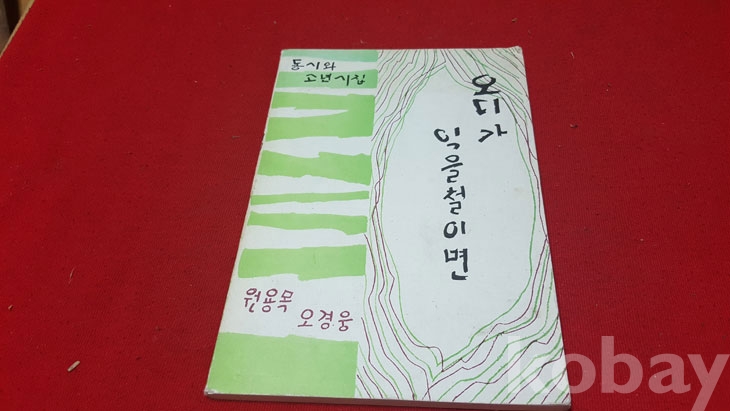 동시와
소년시집
오디가
익을철이면
원용목
오경웅
kobay